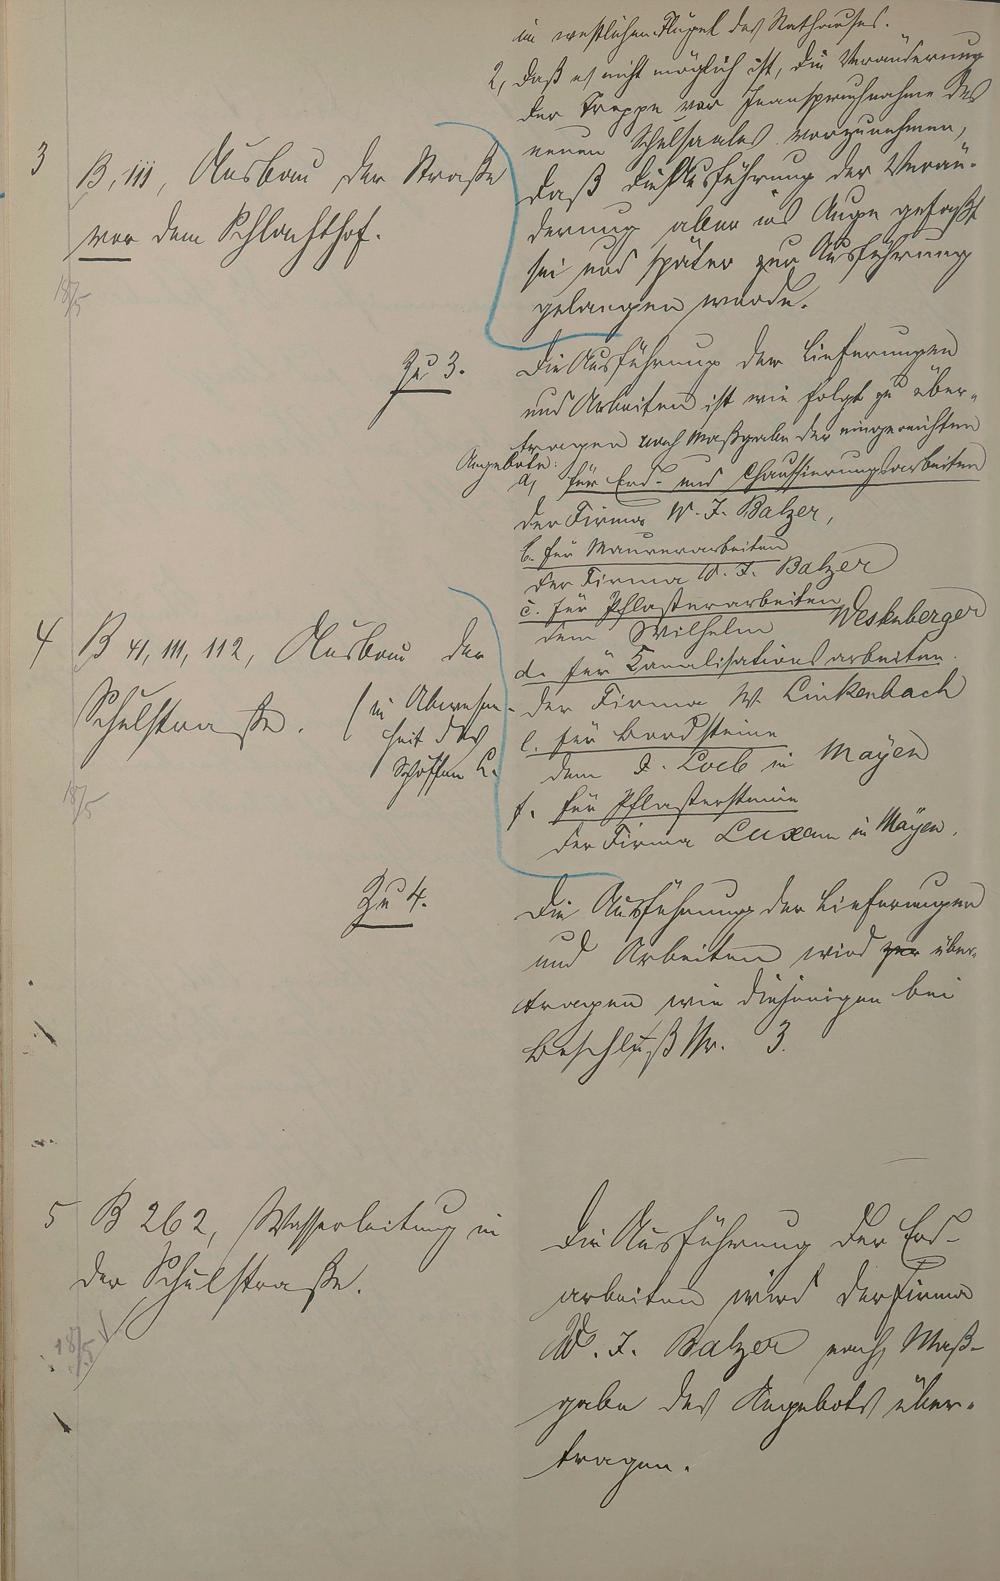 im westlichen Flügel des Rathauses.
2, daß es nicht möglich ist, die Veränderung
der Treppe vor Inanspruchnahme des
neuen Schulsaales vorzunehmen,
daß die Ausführung der Verän-
derung aber ins Auge gefaßt
sei und später zur Ausführung
gelangen werde.
3 B, III, Ausbau der Straße
vor dem Schlachthof.
18/5
Zu 3.
Die Ausführung der Lieferungen
und Arbeiten ist wie folgt zu über-
tragen nach Maßgabe der eingereichten
Angebote:
a, für Erd- und Chaussierungsarbeiten
der Firma W. J. Balzer,
b. für Maurerarbeiten
der Firma W. J. Balzer
c. für Pflasterarbeiten
dem Wilhelm Westenberger
d. für Kanalisationsarbeiten.
der Firma W. Linkenbach
e. für Bordsteine
dem J. Loeb in Mayen
f. für Pflastersteine
der Firma Luxem in Mayen.
4 B 41, 111, 112, Ausbau der
Schulstraße. (in Abwesen-
heit des
Schöffen L.
18/5
Zu 4.
Die Ausführung der Lieferungen
und Arbeiten wird zur über-
tragen wie diejenigen bei
Beschluß Nr. 3.
5 B 262, Wasserleitung in
der Schulstraße.
18/5
Die Ausführung der Erd-
arbeiten wird der Firma
W. J. Balzer nach Maß-
gabe des Angebots über-
tragen.